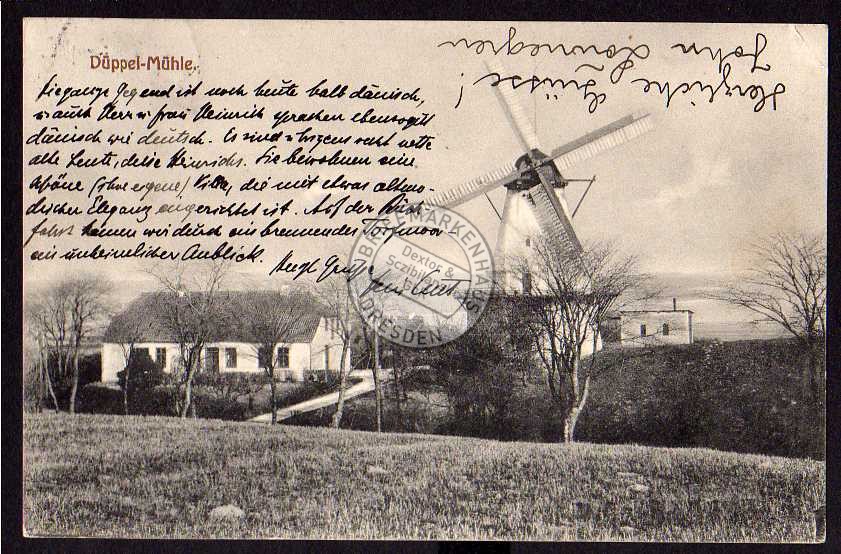 Düppel-Mühle.
Die ganze Gegend ist noch heute halb dänisch,
u. auch Herr u. Frau Heinrich sprachen ebensogut
dänisch wie deutsch. Es sind übrigens recht nette
alte Leute, die Heinrichs. Sie bewohnen eine
schöne (ihre eigene) Villa, die mit etwas altmo-
discher Eleganz eingerichtet ist. Auf der Rück
fahrt kamen wir durch ein brennendes Torfmoor –
ein unheimlicher Anblick.
Herzl Grüße
Kurt
Herzliche Grüsse!
John
BRIEFMARKENHAUS
Dextor &
DRESDEN